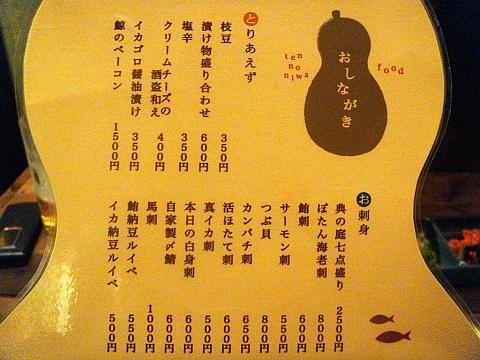 おしながき
ten
no
niwa
food
とりあえず
枝豆 350円
漬け物盛り合わせ 600円
塩辛 350円
クリームチーズの
酒盗和え 400円
イカゴロ醤油漬け 350円
鯨のベーコン 1500円
お刺身
典の庭七点盛り 2500円
ぼたん海老刺 800円
鮪刺 600円
サーモン刺 550円
つぶ貝 800円
カンパチ刺 650円
活ほたて刺 600円
真イカ刺 500円
本日の白身刺 600円
自家製〆鯖 600円
馬刺 1000円
鮪納豆ルイベ 550円
イカ納豆ルイベ 500円